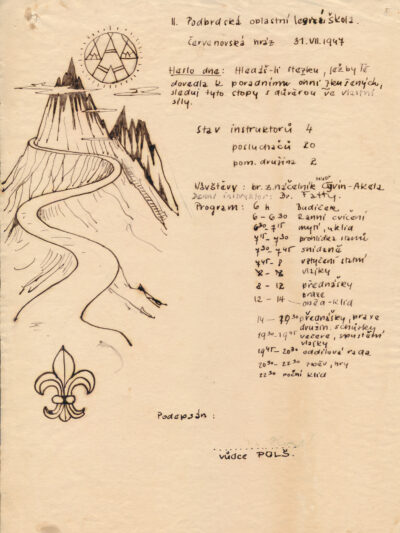 II. Podbrdská oblastní lesní škola.
Červenovská hráz 31.VII.1947
Heslo dne: Hledáš-li stezku, jež by tě
dovedla k poradnímu ohni zkušených,
sleduj tyto stopy s důvěrou ve vlastní
síly.
Stav instruktorů 4
posluchačů 20
pom. družina 2
Návštěvy: br. z. náčelník -Akela
Denní instruktor: Dr. Fatty.
Program: 6 h Budíček
6 - 6³⁰ Ranní cvičení
6³⁰ - 7¹⁵ mytí, úklid
7¹⁵ - 7³⁰ prohlídka stanů
7³⁰ - 7⁴⁵ snídaně
7⁴⁵ - 8 vztyčení státní
vlajky
8 - 12 přednášky
práce
12 - 14 oběd - klid
14 - 19³⁰ přednášky, praxe
družin. schůzky
19³⁰ - 19⁴⁵ večeře, spuštění
vlajky
19⁴⁵ - 20³⁰ oddílová rada
20³⁰ - 22³⁰ zpěv, hry
22³⁰ noční klid
Podepsán:
vůdce POLŠ.